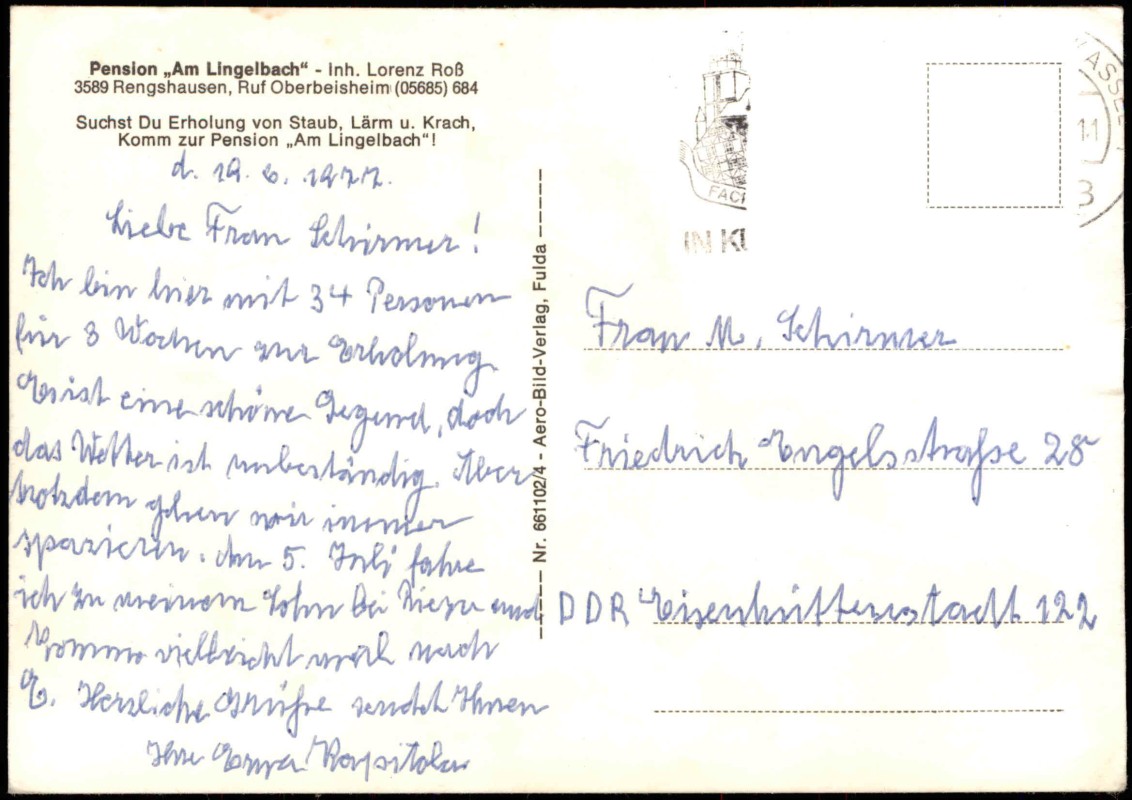 Pension „Am Lingelbach“ - Inh. Lorenz Roß
3589 Rengshausen, Ruf Oberbeisheim (05685) 684
Suchst Du Erholung von Staub, Lärm u. Krach,
Komm zur Pension „Am Lingelbach“!
d. 19. 6. 1977.
Liebe Frau Schirmer!
Ich bin hier mit 34 Personen
für 3 Wochen zur Erholung.
Es ist eine schöne Gegend, doch
das Wetter ist unbeständig. Aber
trotzdem gehen wir immer
spazieren. Am 5. Juli fahre
ich zu meinem Sohn bei Riesa und
komme vielleicht mal nach
E. Herzliche Grüße sendet Ihnen
Ihre Kapitola
Nr. 661102/4 - Aero-Bild-Verlag, Fulda
FACH
IN KU
KASSEL
11
3
Frau M. Schirmer
Friedrich Engelsstraße 28
DDR Eisenhüttenstadt 122